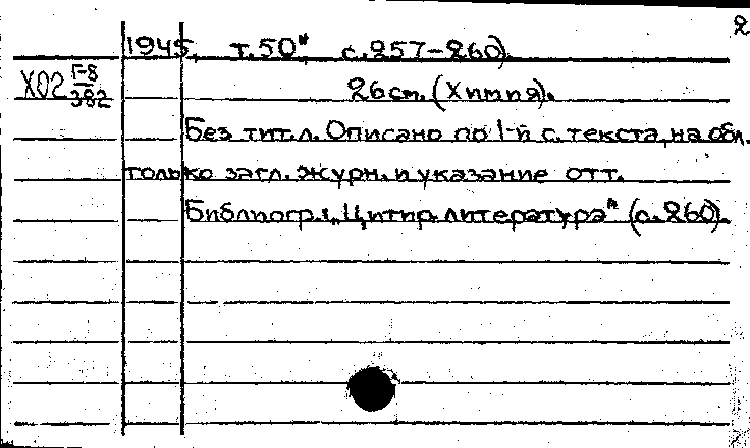 2
1945, т.50", с.257-260).
Х02 Г-8/382
26см. (Химия).
Без тит.л. Описано по 1-й с. текста, на обл.
только загл. журн. и указание отт.
Библиогр.: „Цитир. литература" (с.260).